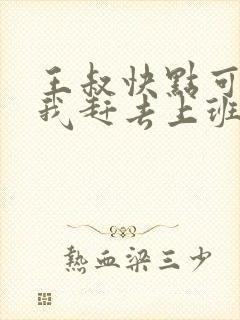 王叔快點可
我赶去上班
熱血梁三少